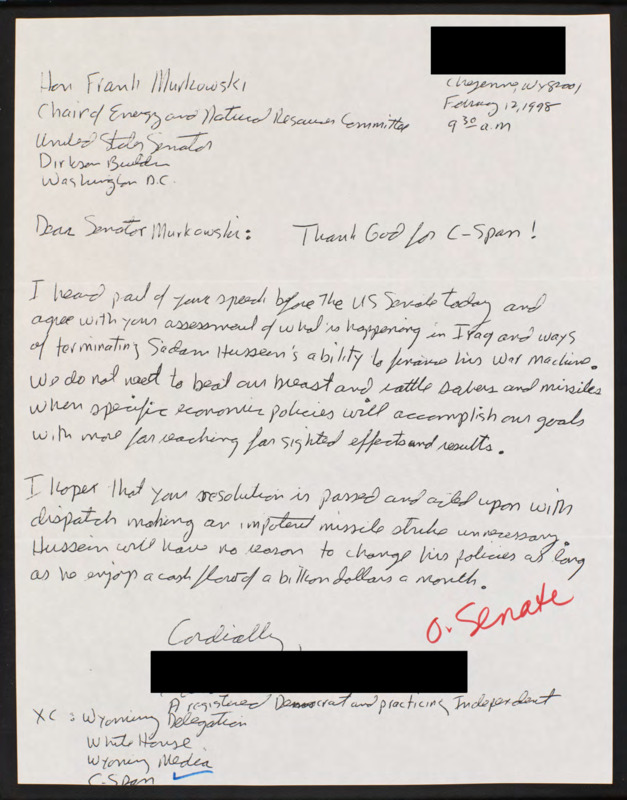 Cheyenne, WY 82001
February 12, 1998
9 30 a.m
Hon Frank Murkowski
Chair of Energy and Natural Resources Committee
United States Senator
Dirksen Building
Washington D.C.
Dear Senator Murkowski: Thank God for C-Span!
I heard part of your speech before the US Senate today and
agree with your assessment of what is happening in Iraq and ways
of terminating Sadam Hussein's ability to finance his war machine.
We do not need to beat our breast and rattle sabers and missiles
when specific economic policies will accomplish our goals
with more far reaching far sighted effects and results.
I hope that your resolution is passed and acted upon with
dispatch making an impotent missile strike unnecessary.
Hussein will have no reason to change his policies as long
as he enjoys a cash flow of a billion dollars a month.
O. Senate
Cordially,
A registered Democrat and practicing Independent
XC: Wyoming Delegation
White House
Wyoming Media
C-Span